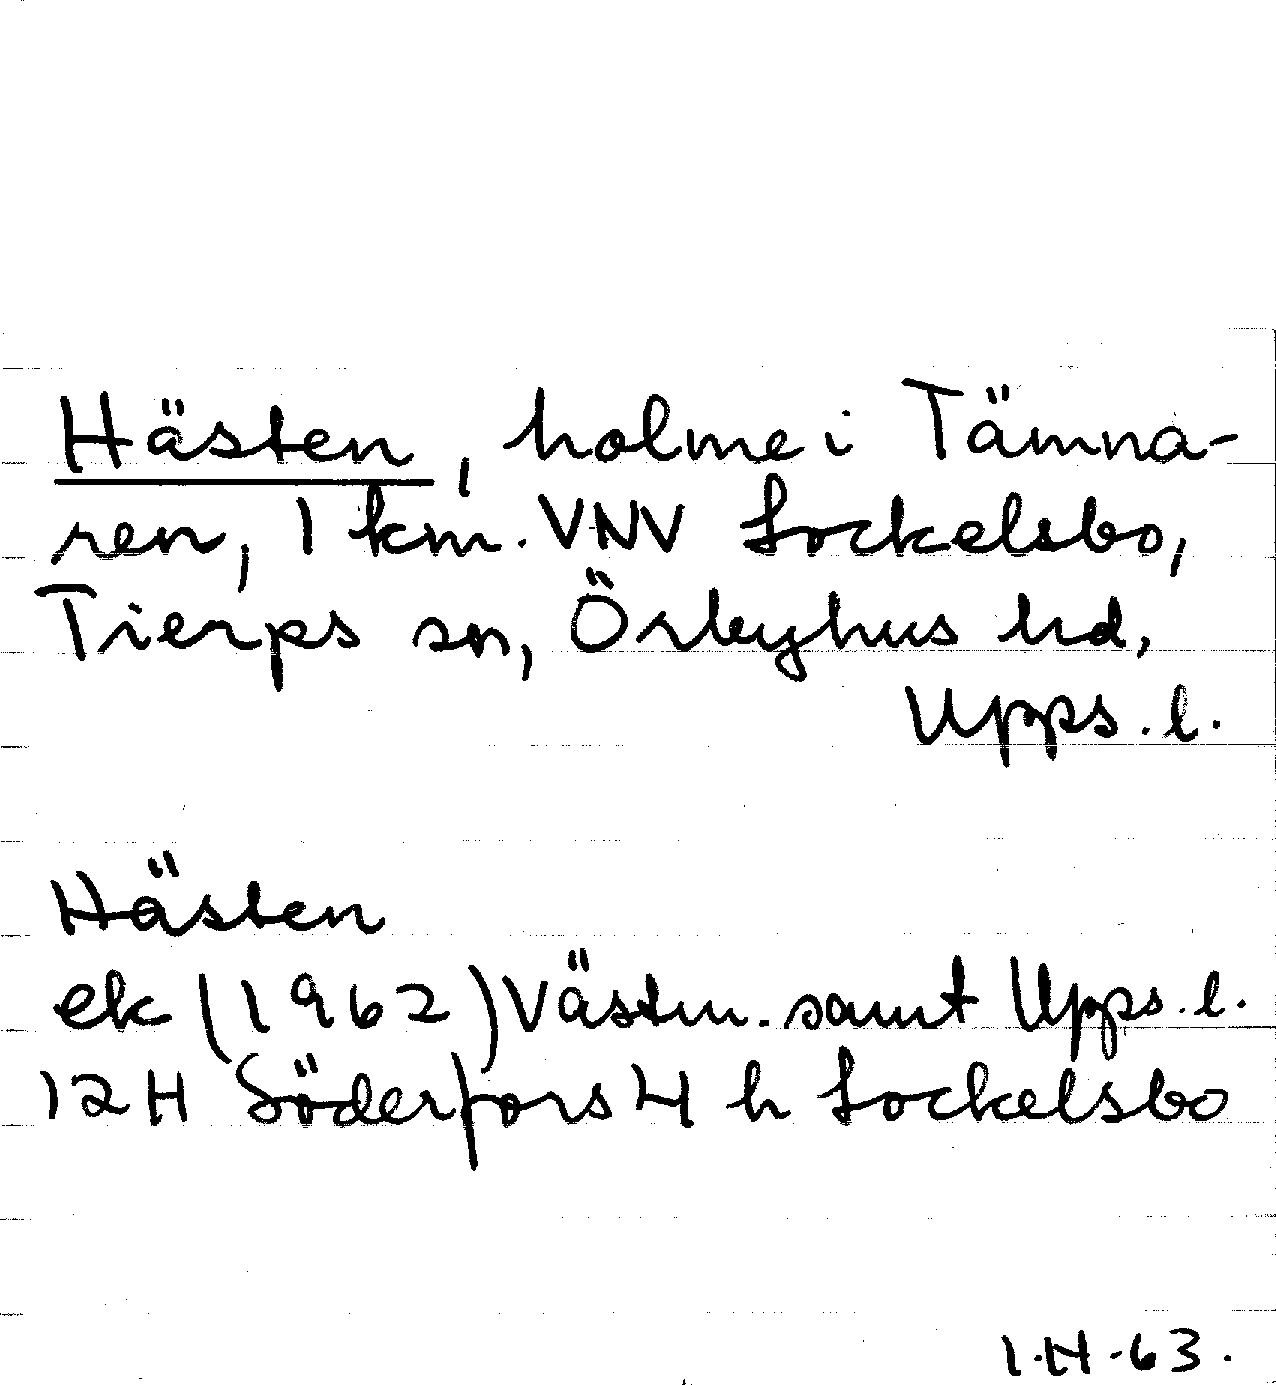 Hästen, holme i Tämna-
ren, 1 km. VNV Sockelsbo,
Tierps sn, Örbyhus hd,
Upps. l.
Hästen
ek (1962) Västm. samt Upps. l.
12H Söderfors 4 h Sockelsbo
I.H-63.